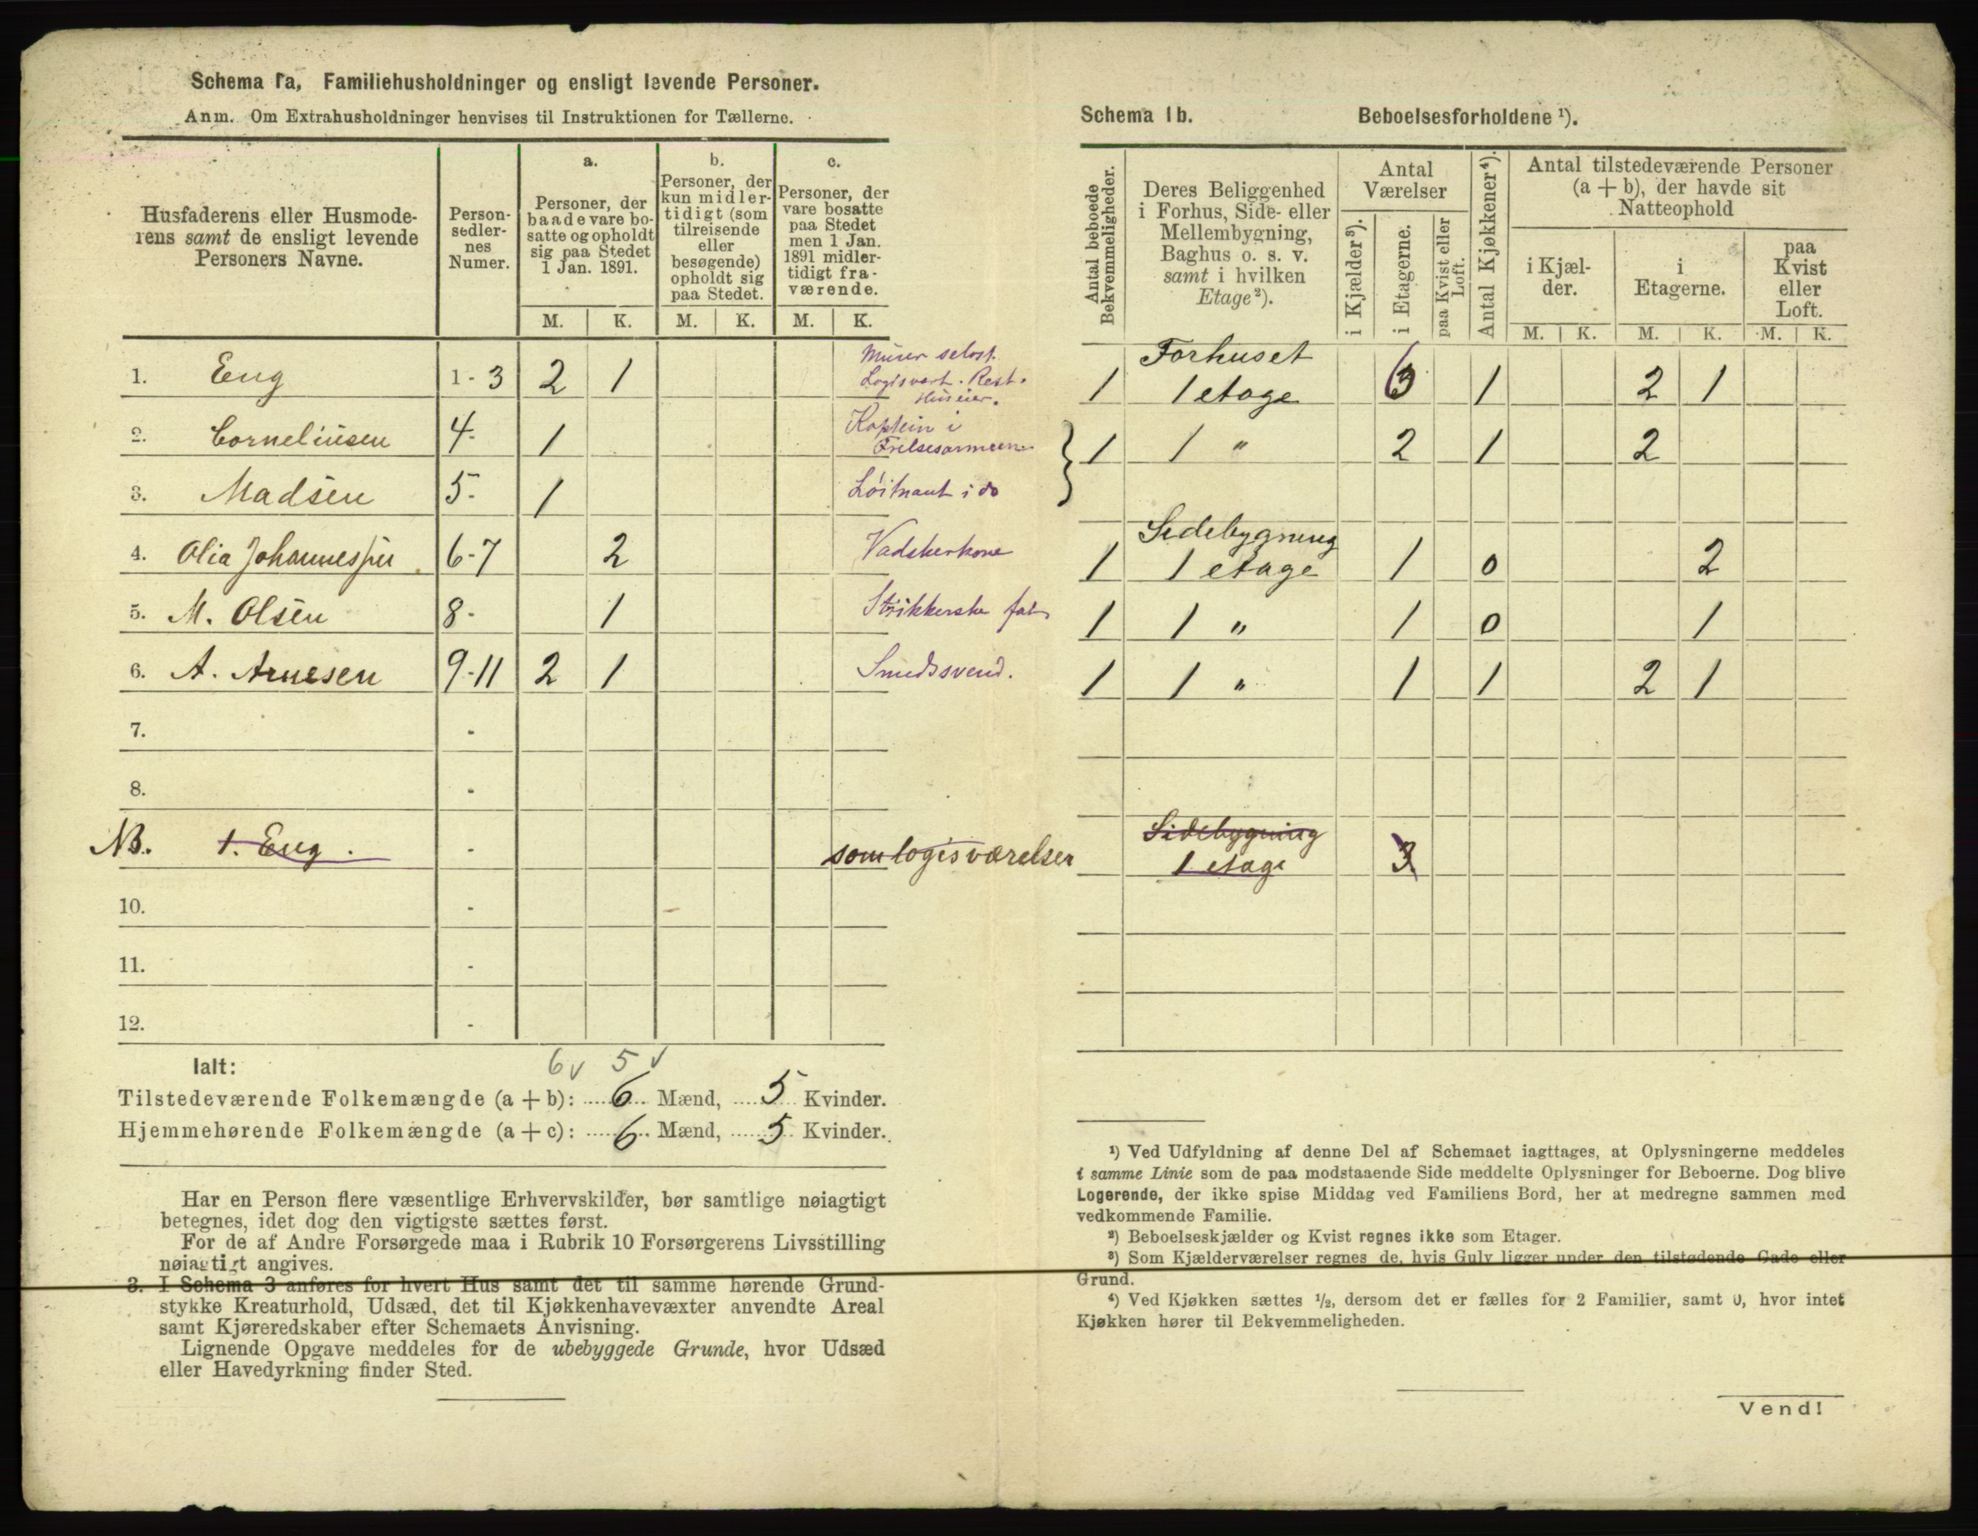 Schema 1a, Familiehusholdninger og ensligt levende Personer.
Anm. Om Extrahusholdninger henvises til Instruktionen for Tællerne.
Husfaderens eller Husmoderens samt de ensligt levende Personers Navne.
Personsedlernes Numer.
a.
Personer, der baade vare bosatte og opholdt sig paa Stedet 1 Jan. 1891.
b.
Personer, der kun midlertidigt (som tilreisende eller besøgende) opholdt sig paa Stedet.
c.
Personer, der vare bosatte paa Stedet men 1 Jan. 1891 midlertidigt fraværende.
M. K. M. K. M. K.
1. Eng 1-3 2 1 Murer selvst. Logisvert. Rest. Huseier.
2. Corneliusen 4- 1 Kaptein i Frelsesarmeen
3. Madsen 5- 1 Løitnant i do
4. Olia Johannesen 6-7 2 Vadskerkone
5. M. Olsen 8- 1 Strikkerske
6. A. Arnesen 9-11 2 1 Smedsvend.
7. -
8. -
NB. 1. Eng. - som logisværelser
10. -
11. -
12. -
Ialt:
6 v 5 v
Tilstedeværende Folkemængde (a + b): 6 Mænd, 5 Kvinder.
Hjemmehørende Folkemængde (a + c): 6 Mænd, 5 Kvinder.
Har en Person flere væsentlige Erhvervskilder, bør samtlige nøiagtigt
betegnes, idet dog den vigtigste sættes først.
For de af Andre Forsørgede maa i Rubrik 10 Forsørgerens Livsstilling
nøiagtigt angives.
3. I Schema 3 anføres for hvert Hus samt det til samme hørende Grund-
stykke Kreaturhold, Udsæd, det til Kjøkkenhavevæxter anvendte Areal
samt Kjøreredskaber efter Schemaets Anvisning.
Lignende Opgave meddeles for de ubebyggede Grunde, hvor Udsæd
eller Havedyrkning finder Sted.
Schema 1b. Beboelsesforholdene ¹).
Antal beboede Bekvemmeligheder.
Deres Beliggenhed i Forhus, Side- eller Mellembygning, Baghus o. s. v. samt i hvilken Etage²).
Antal Værelser
i Kjælder³).
i Etagerne.
paa Kvist eller Loft.
Antal Kjøkkener⁴).
Antal tilstedeværende Personer (a + b), der havde sit Natteophold
i Kjælder.
i Etagerne.
paa Kvist eller Loft.
M. K. M. K. M. K.
1 Forhuset 1 etage 6 1 2 1
1 1 " 2 1 2
1 Sidebygning 1 etage 1 0 2
1 1 " 1 0 1
1 1 " 1 1 2 1
Sidebygning 1 etage 3
¹) Ved Udfyldning af denne Del af Schemaet iagttages, at Oplysningerne meddeles
i samme Linie som de paa modstaaende Side meddelte Oplysninger for Beboerne. Dog blive
Logerende, der ikke spise Middag ved Familiens Bord, her at medregne sammen med
vedkommende Familie.
²) Beboelseskjælder og Kvist regnes ikke som Etager.
³) Som Kjælderværelser regnes de, hvis Gulv ligger under den tilstødende Gade eller
Grund.
⁴) Ved Kjøkken sættes ½, dersom det er fælles for 2 Familier, samt 0, hvor intet
Kjøkken hører til Bekvemmeligheden.
Vend!